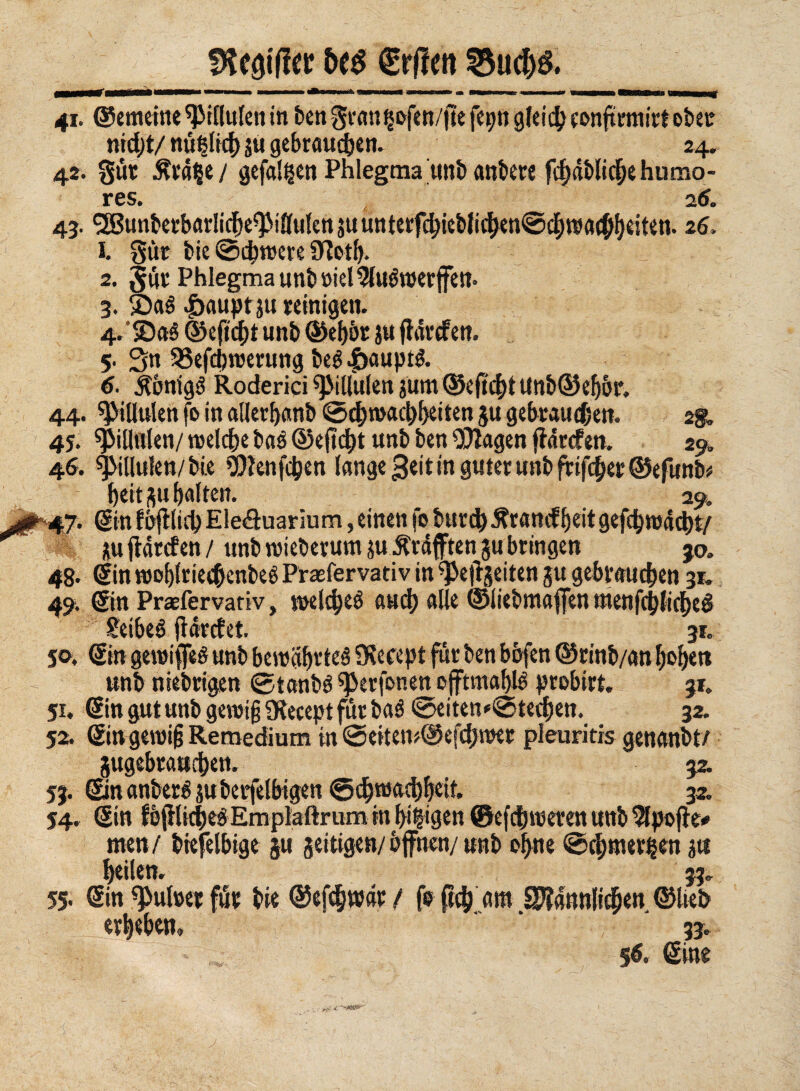 Register des Ersten Buchs.
41. Gemeine Pillulen in den Frantzosen/sie seyn gleich confirmirt oder
nicht/ nützlich zu gebrauchen. 24.
42. Für Krätze / gesaltzen Phlegma und andere schädliche humo-
res. 26.
43. Wunderbarliche Pillulen zu unterschiedlichen Schwachheiten. 26.
1. Für die Schwere Noth.
2. Für Phlegma und viel Außwerffen.
3. Das Haupt zu reinigen.
4. Das Gesicht und Gehör zu stärcken.
5. In Beschwerung deß Haupts.
6. Königs Roderici Pillulen zum Gesicht und Gehör.
44. Pillulen so in allerhand Schwachheiten zu gebrauchen. 28.
45. Pillulen/ welche das Gesicht und den Magen stärcken. 29.
46. Pillulen/ die Menschen lange Zeit in guter und frischer Gesund-
heit zu halten. 29.
47. Ein köstlich Electuarium, einen so durch Kranckheit geschwächt/
zu stärcken / und wiederum zu Kräfften zu bringen 30.
48. Ein wohlriechendes Præservativ in Pestzeiten zu gebrauchen 31.
49. Ein Præservativ, welches auch alle Gliedmassen menschliches
Leibes stärcket. 31.
50. Ein gewisses und bewährtes Recept für den bösen Grind/an hohen
und niedrigen Stands Personen offtmahls probirt. 31.
51. Ein gut und gewiß Recept für das Seiten-Stechen. 32.
52. Ein gewiß Remedium in Seiten-Geschwer pleuritis genandt/
zugebrauchen. 32.
53. Ein anders zu derselbigen Schwachheit. 32.
54. Ein köstliches Emplastrum in hitzigen Geschweren und Aposte-
men/ dieselbige zu zeitigen/ öffnen/ und ohne Schmertzen zu
heilen. 33.
55. Ein Pulver für die Geschwär / so sich am Männlichen Glied
erheben. 33.
56. Eine